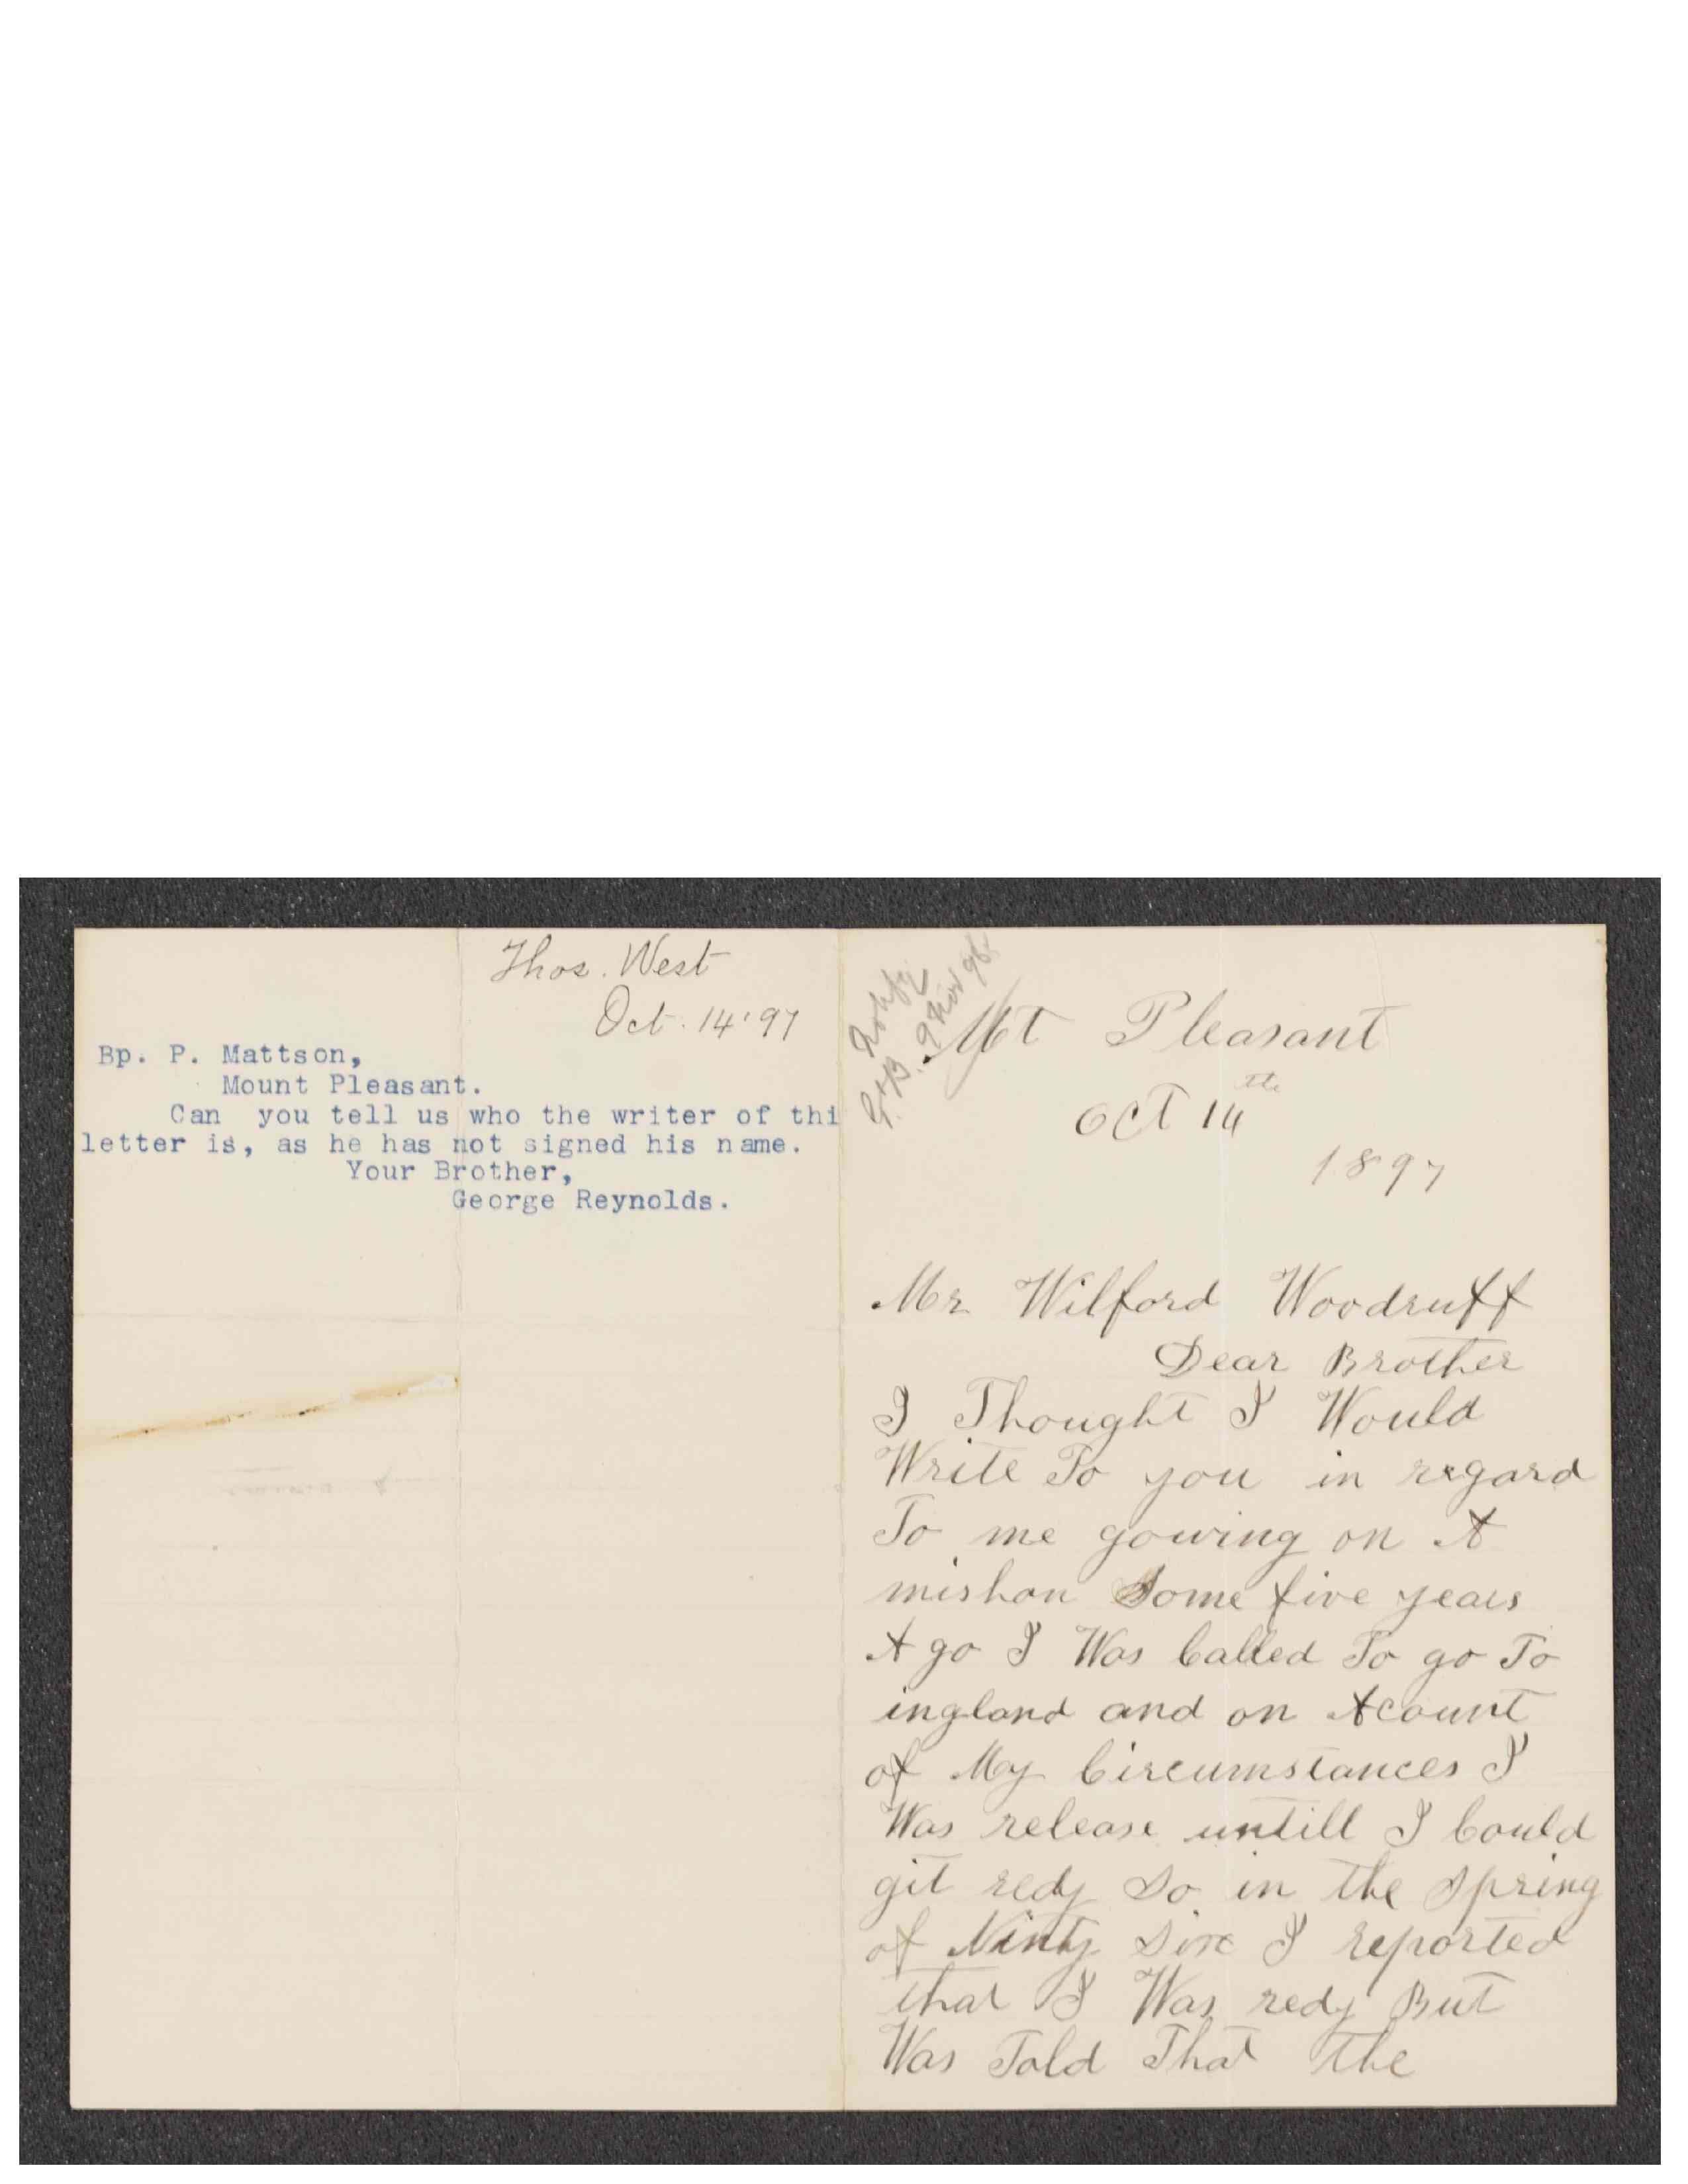 Thos. West
Oct. 14'97
Bp. P. Mattson,
Mount Pleasant.
Can you tell us who the writer of thi
letter is, as he has not signed his name.
Your Brother,
George Reynolds.
Mt Pleasant
Oct 14th
1897
Mr Wilford Woodruff
Dear Brother
I Thought I Would
Write To you in regard
To me gowing on A
mishon Some five years
A go I Was Called To go To
ingland and on Acount
of My Circumstances I
Was release untill I Could
git redy So in the Spring
of Ninty Six I reported
that I Was redy But
Was Told That The